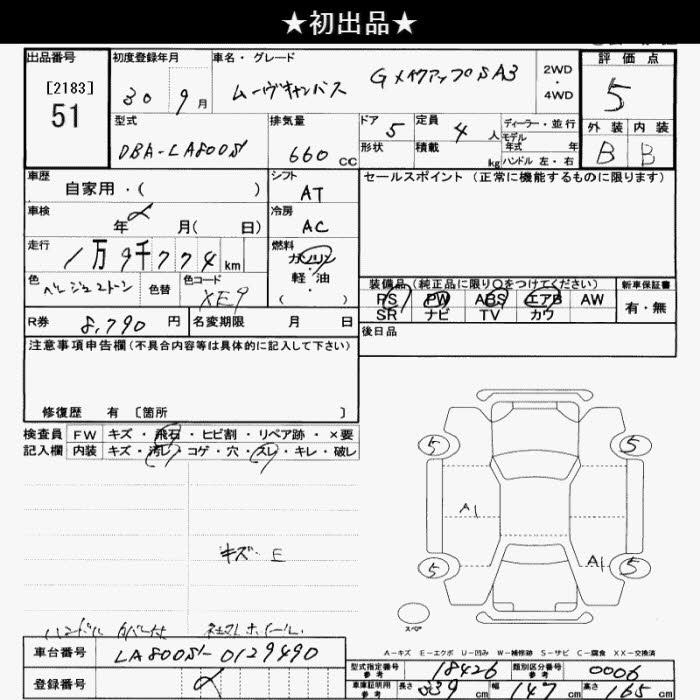 ★初出品★
出品番号 初度登録年月 車名・グレード 評価点
[2183]
51
30 9月 ムーヴキャンバス GメイクアップSA3 2WD・4WD 5
型式 排気量 ドア 5 定員 4人 ディーラー・並行 外装 内装
モデル年式 年
DBA-LA800S 660CC 形状 積載 kg ハンドル 左・右 B B
車歴 シフト セールスポイント(正常に機能するものに限ります)
自家用・( ) AT
車検 冷房
年 月( 日) AC
走行 燃料
1万9千774km ガソリン
軽・油
( )
色 色替 色コード 装備品(純正品に限り○をつけてください) 新車保証書
ベージュ2トーン XE9 PS PW ABS エアB AW 有・無
SR ナビ TV カワ
R券 8,790円 名変期限 月 日 後日品
注意事項申告欄(不具合内容等は具体的に記入して下さい)
修復歴 有 〔箇所 〕
検査員 FW キズ・飛石・ヒビ割・リペア跡・×要
記入欄 内装 キズ・汚レ・コゲ・穴・スレ・キレ・破レ
5 5
A1
キズ・E
A1
5 5
スペア
ハンドルカバー付 社外ホイール
A-キズ E-エクボ U-凹み W-補修跡 S-サビ C-腐食 XX-交換済
車台番号 LA800S-0129490
型式指定番号 参考 18426 類別区分番号 参考 0006
登録番号
車庫証明用 参考 長さ 339cm 幅 147cm 高さ 165cm